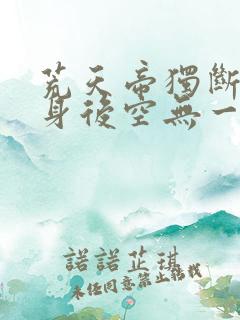 荒天帝獨斷
身後空無一
諾諾芷琪
未经同意禁止转载